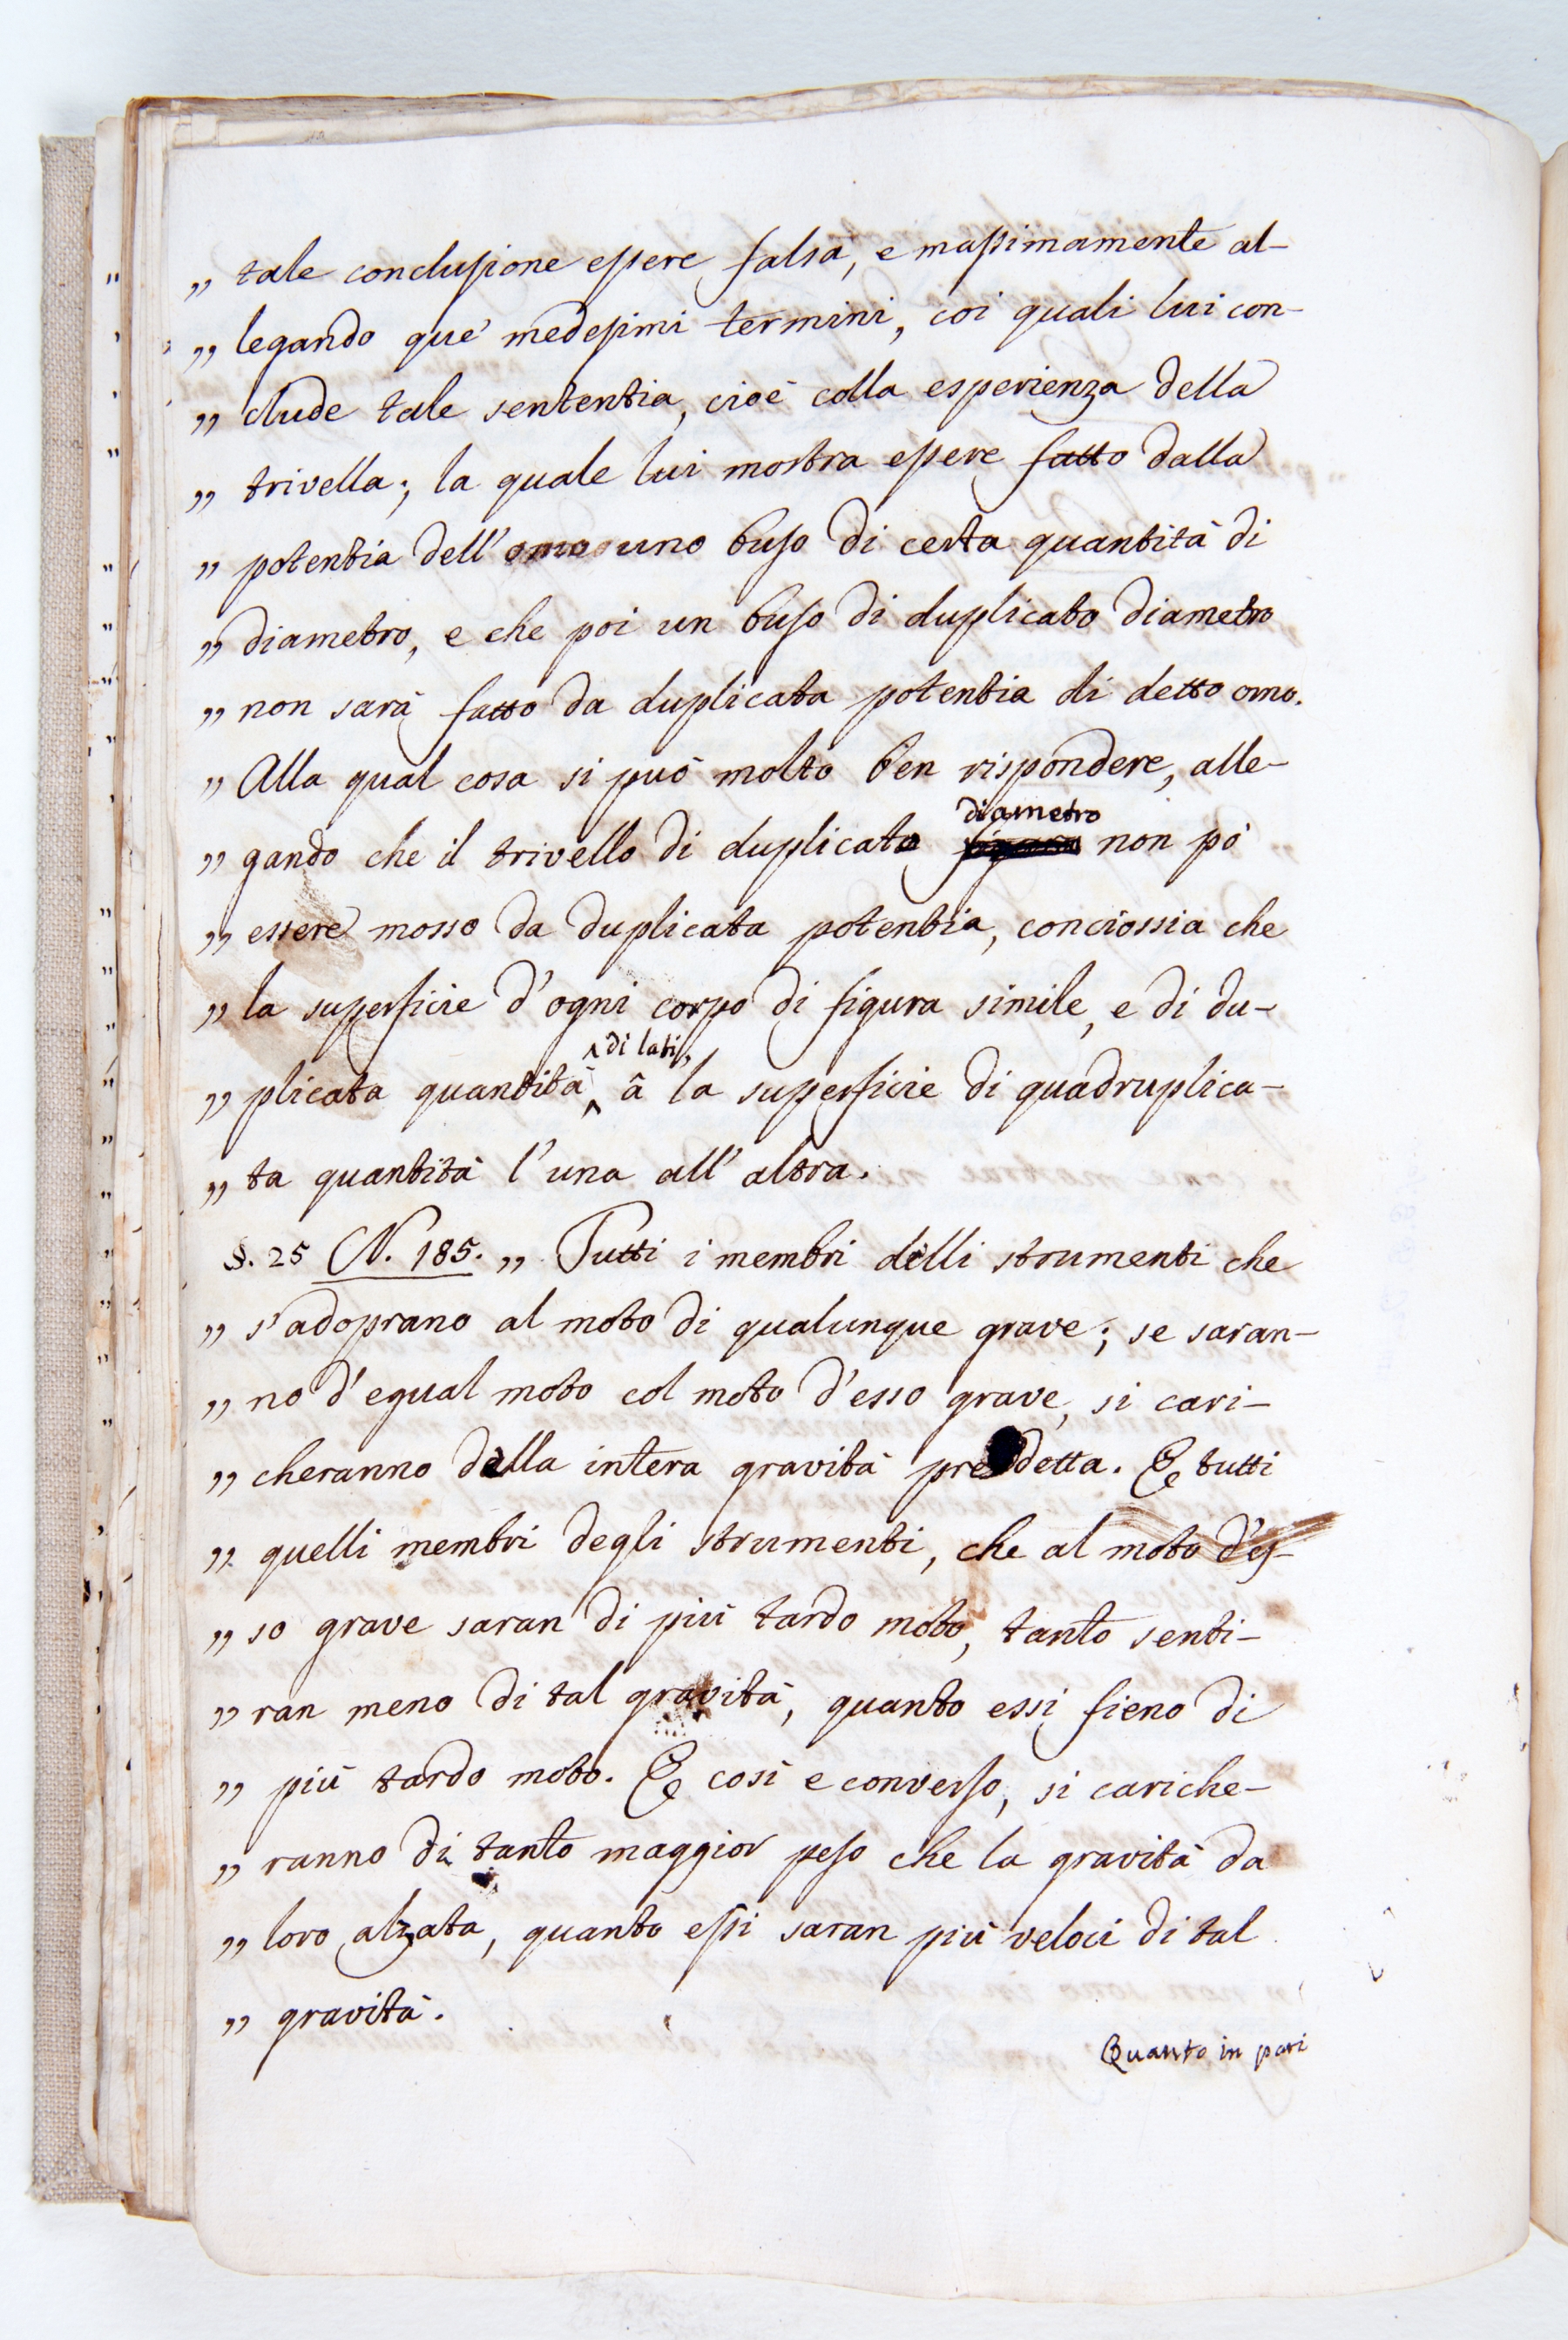 „ tale conclusione essere falsa, e massimamente al-
„ legando que' medesimi termini, coi quali lui con-
„ clude tale sententia, cioè colla esperienza della
„ trivella; la quale lui mostra essere fatto dalla
„ potentia dell'omo uno buso di certa quantità di
„ diametro, e che poi un buso di duplicato diametro
„ non sarà fatto da duplicata potentia di detto omo.
„ Alla qual cosa si può molto ben rispondere, alle-
diametro
„ gando che il trivello di duplicato figura non pò
„ essere mosso da duplicata potentia, conciossia che
„ la superficie d'ogni corpo di figura simile, e di du-
di lati,
„ plicata quantità, â la superficie di quadruplica-
„ ta quantità l'una all'altra.
§. 25 N. 185. „ Tutti i membri delli strumenti che
„ s'adoprano al moto di qualunque grave; se saran-
„ no d'egual moto col moto d'esso grave, si cari-
„ cheranno della intera gravità predetta. E tutti
„ quelli membri degli strumenti, che al moto d'es-
„ so grave saran di più tardo moto, tanto senti-
„ ran meno di tal gravità, quanto essi fieno di
„ più tardo moto. E così e converso, si cariche-
„ ranno di tanto maggior peso che la gravità da
„ loro alzata, quanto essi saran più veloci di tal
„ gravità.
Quanto in pari